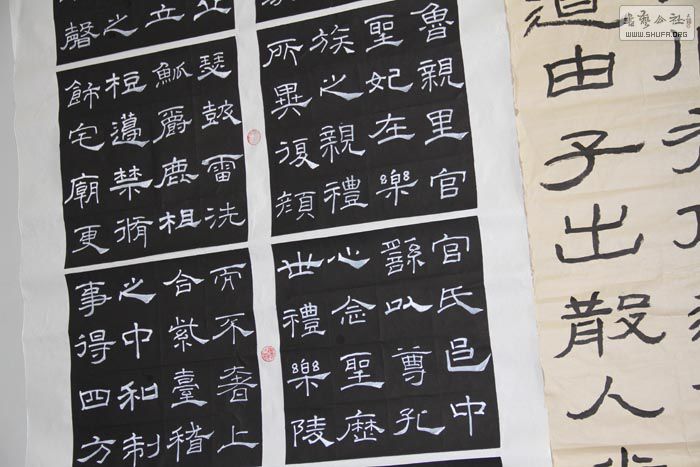 www.shufa.org
道由子出散人
魯親里官
聖妃在樂
族之親禮
所異復顏
官氏邑中
繇以尊孔
心念聖歷
世禮樂陵
立
之
聲
瑟鼓雷洗
觚爵鹿柤
梪籩禁脩
飾宅廟更
而不奢上
合紫臺稽
之中和制
事得四方